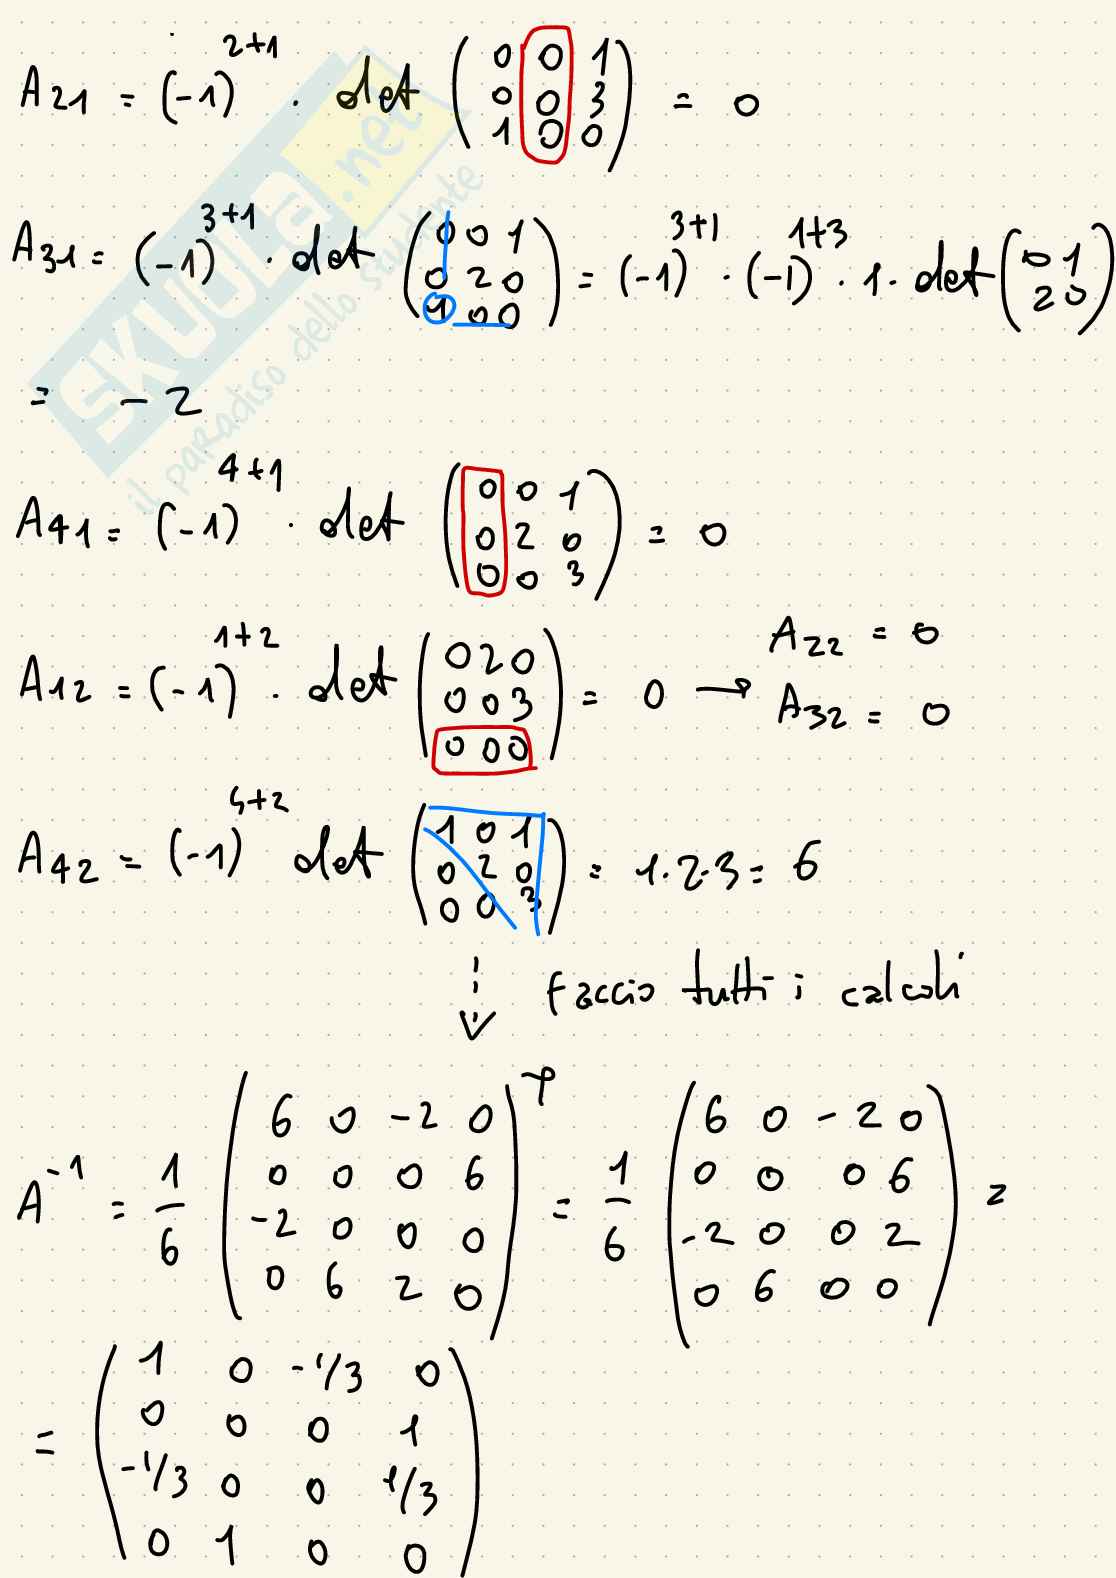 A₂₁ = (-1)²⁺¹ · det (0 0 1; 0 0 3; 1 0 0) = 0
A₃₁ = (-1)³⁺¹ · det (0 0 1; 0 2 0; 1 0 0) = (-1)³⁺¹ · (-1)¹⁺³ · 1 · det (0 1; 2 0)
= -2
A₄₁ = (-1)⁴⁺¹ · det (0 0 1; 0 2 0; 0 0 3) = 0
A₁₂ = (-1)¹⁺² · det (0 2 0; 0 0 3; 0 0 0) = 0 → A₂₂ = 0
A₃₂ = 0
A₄₂ = (-1)⁴⁺² det (1 0 1; 0 2 0; 0 0 3) = 1·2·3 = 6
Faccio tutti i calcoli
A⁻¹ = 1/6 (6 0 -2 0; 0 0 0 6; -2 0 0 0; 0 6 2 0)ᵀ = 1/6 (6 0 -2 0; 0 0 0 6; -2 0 0 2; 0 6 0 0) =
= (1 0 -1/3 0; 0 0 0 1; -1/3 0 0 1/3; 0 1 0 0)
SKUOLA.net
il paradiso dello studente